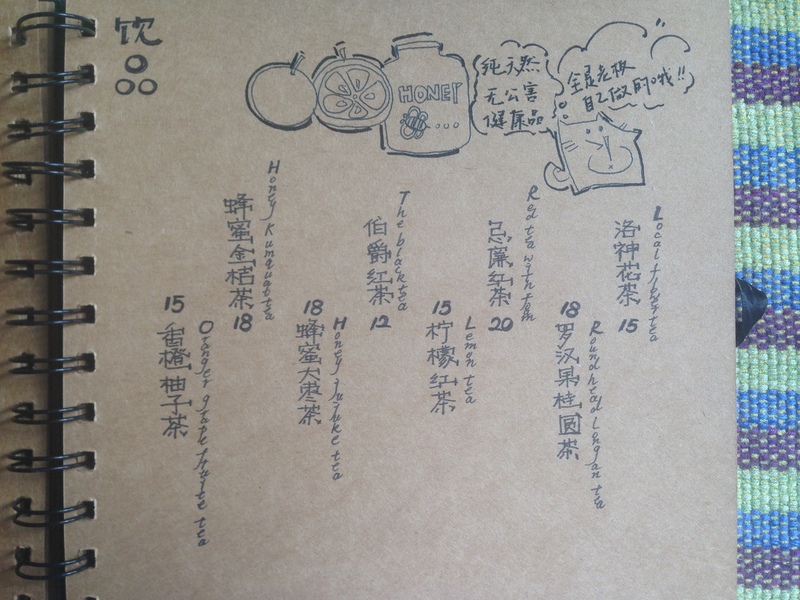 饮
HONEY
纯天然
无公害
健康品
全是老板
自己做的哦!!
Honey kumquat tea
蜂蜜金桔茶
18
The black tea
伯爵红茶
12
Red tea with rum
忌廉红茶
20
Local flower tea
洛神花茶
15
15
香橙柚子茶
Oranger grapefruite tea
18
蜂蜜大枣茶
Honey jujuke tea
15
柠檬红茶
Lemon tea
18
罗汉果桂圆茶
Round head longan tea